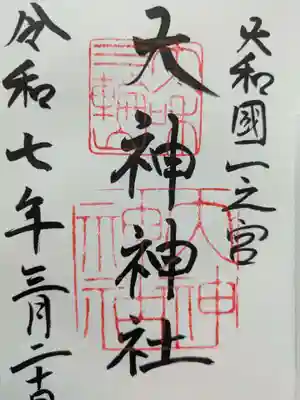 大和國一之宮
大神神社
大神神社
令和七年三月二十日